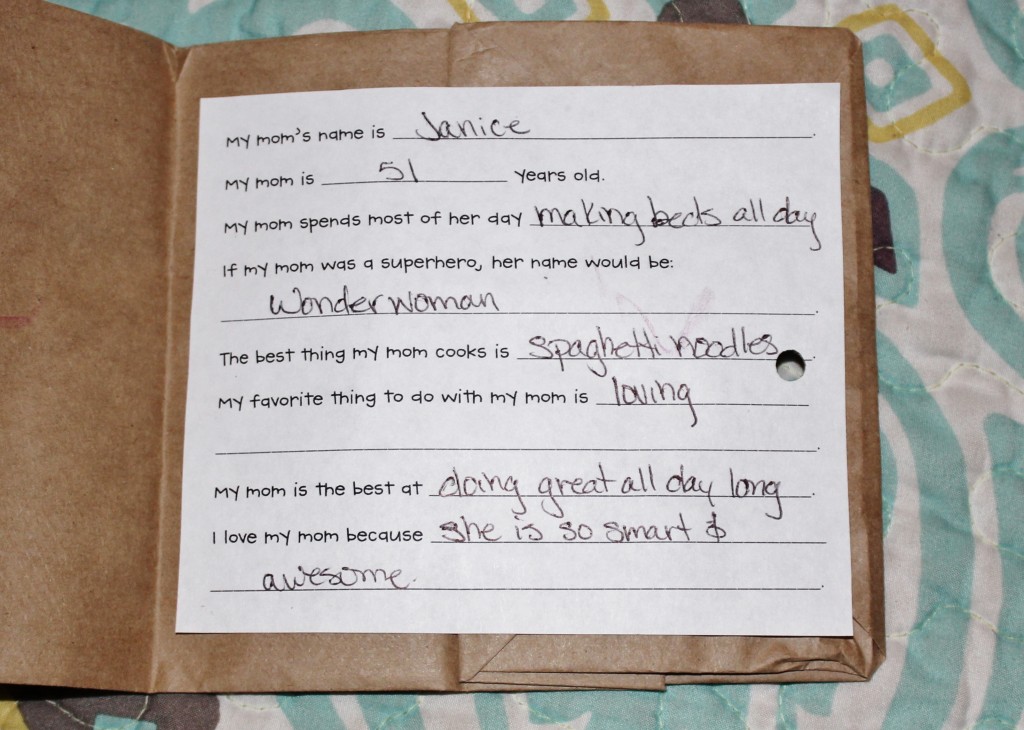 My mom's name is Janice.
My mom is 51 years old.
My mom spends most of her day making beds all day
If my mom was a superhero, her name would be:
Wonder woman.
The best thing my mom cooks is spaghetti noodles.
My favorite thing to do with my mom is loving
.
My mom is the best at doing great all day long.
I love my mom because she is so smart &
awesome.